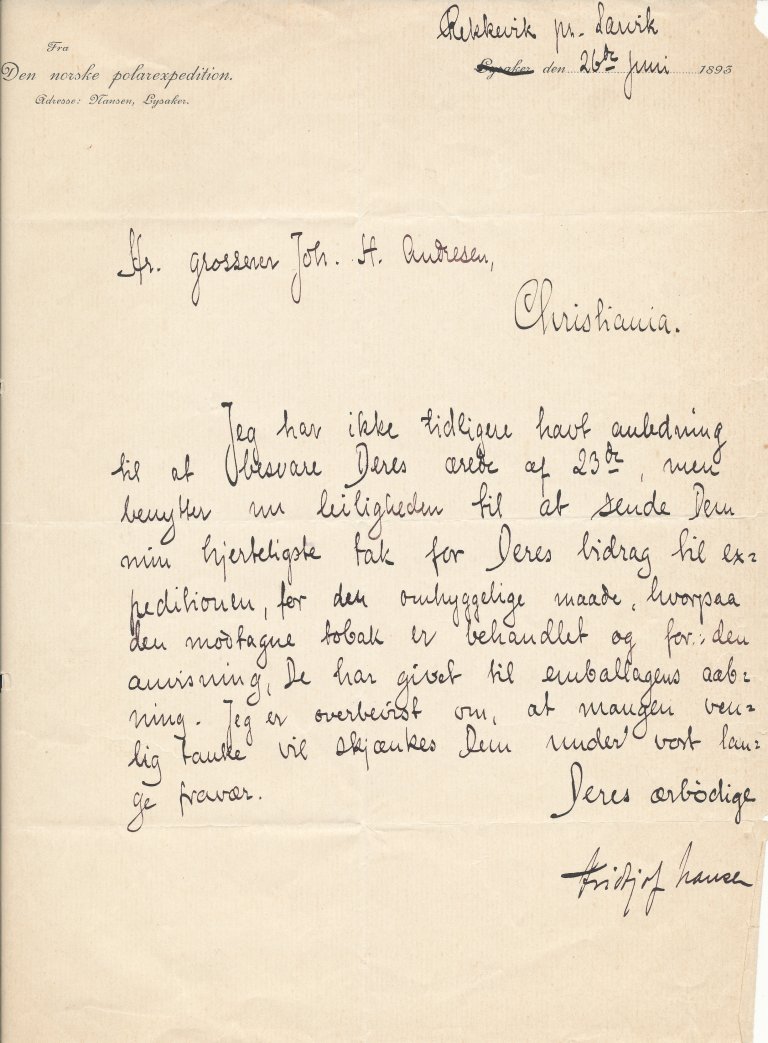 Rekkevik pr. Larvik
Fra
Den norske polarexpedition.
Adresse: Nansen, Lysaker.
Lysaker den 26de Juni 1893
Hr. grosserer Joh. H. Andresen,
Christiania.
Jeg har ikke tidligere havt anledning
til at besvare Deres ærede af 23de, men
benytter nu leiligheden til at sende Dem
min hjerteligste tak for Deres bidrag til ex=
peditionen, for den omhyggelige maade, hvorpaa
den modtagne tobak er behandlet og for den
anvisning, De har givet til emballagens aab=
ning. Jeg er overbevist om, at mangen ven=
lig tanke vil skjænkes Dem under vort lan=
ge fravær.
Deres ærbödige
Fridtjof Nansen